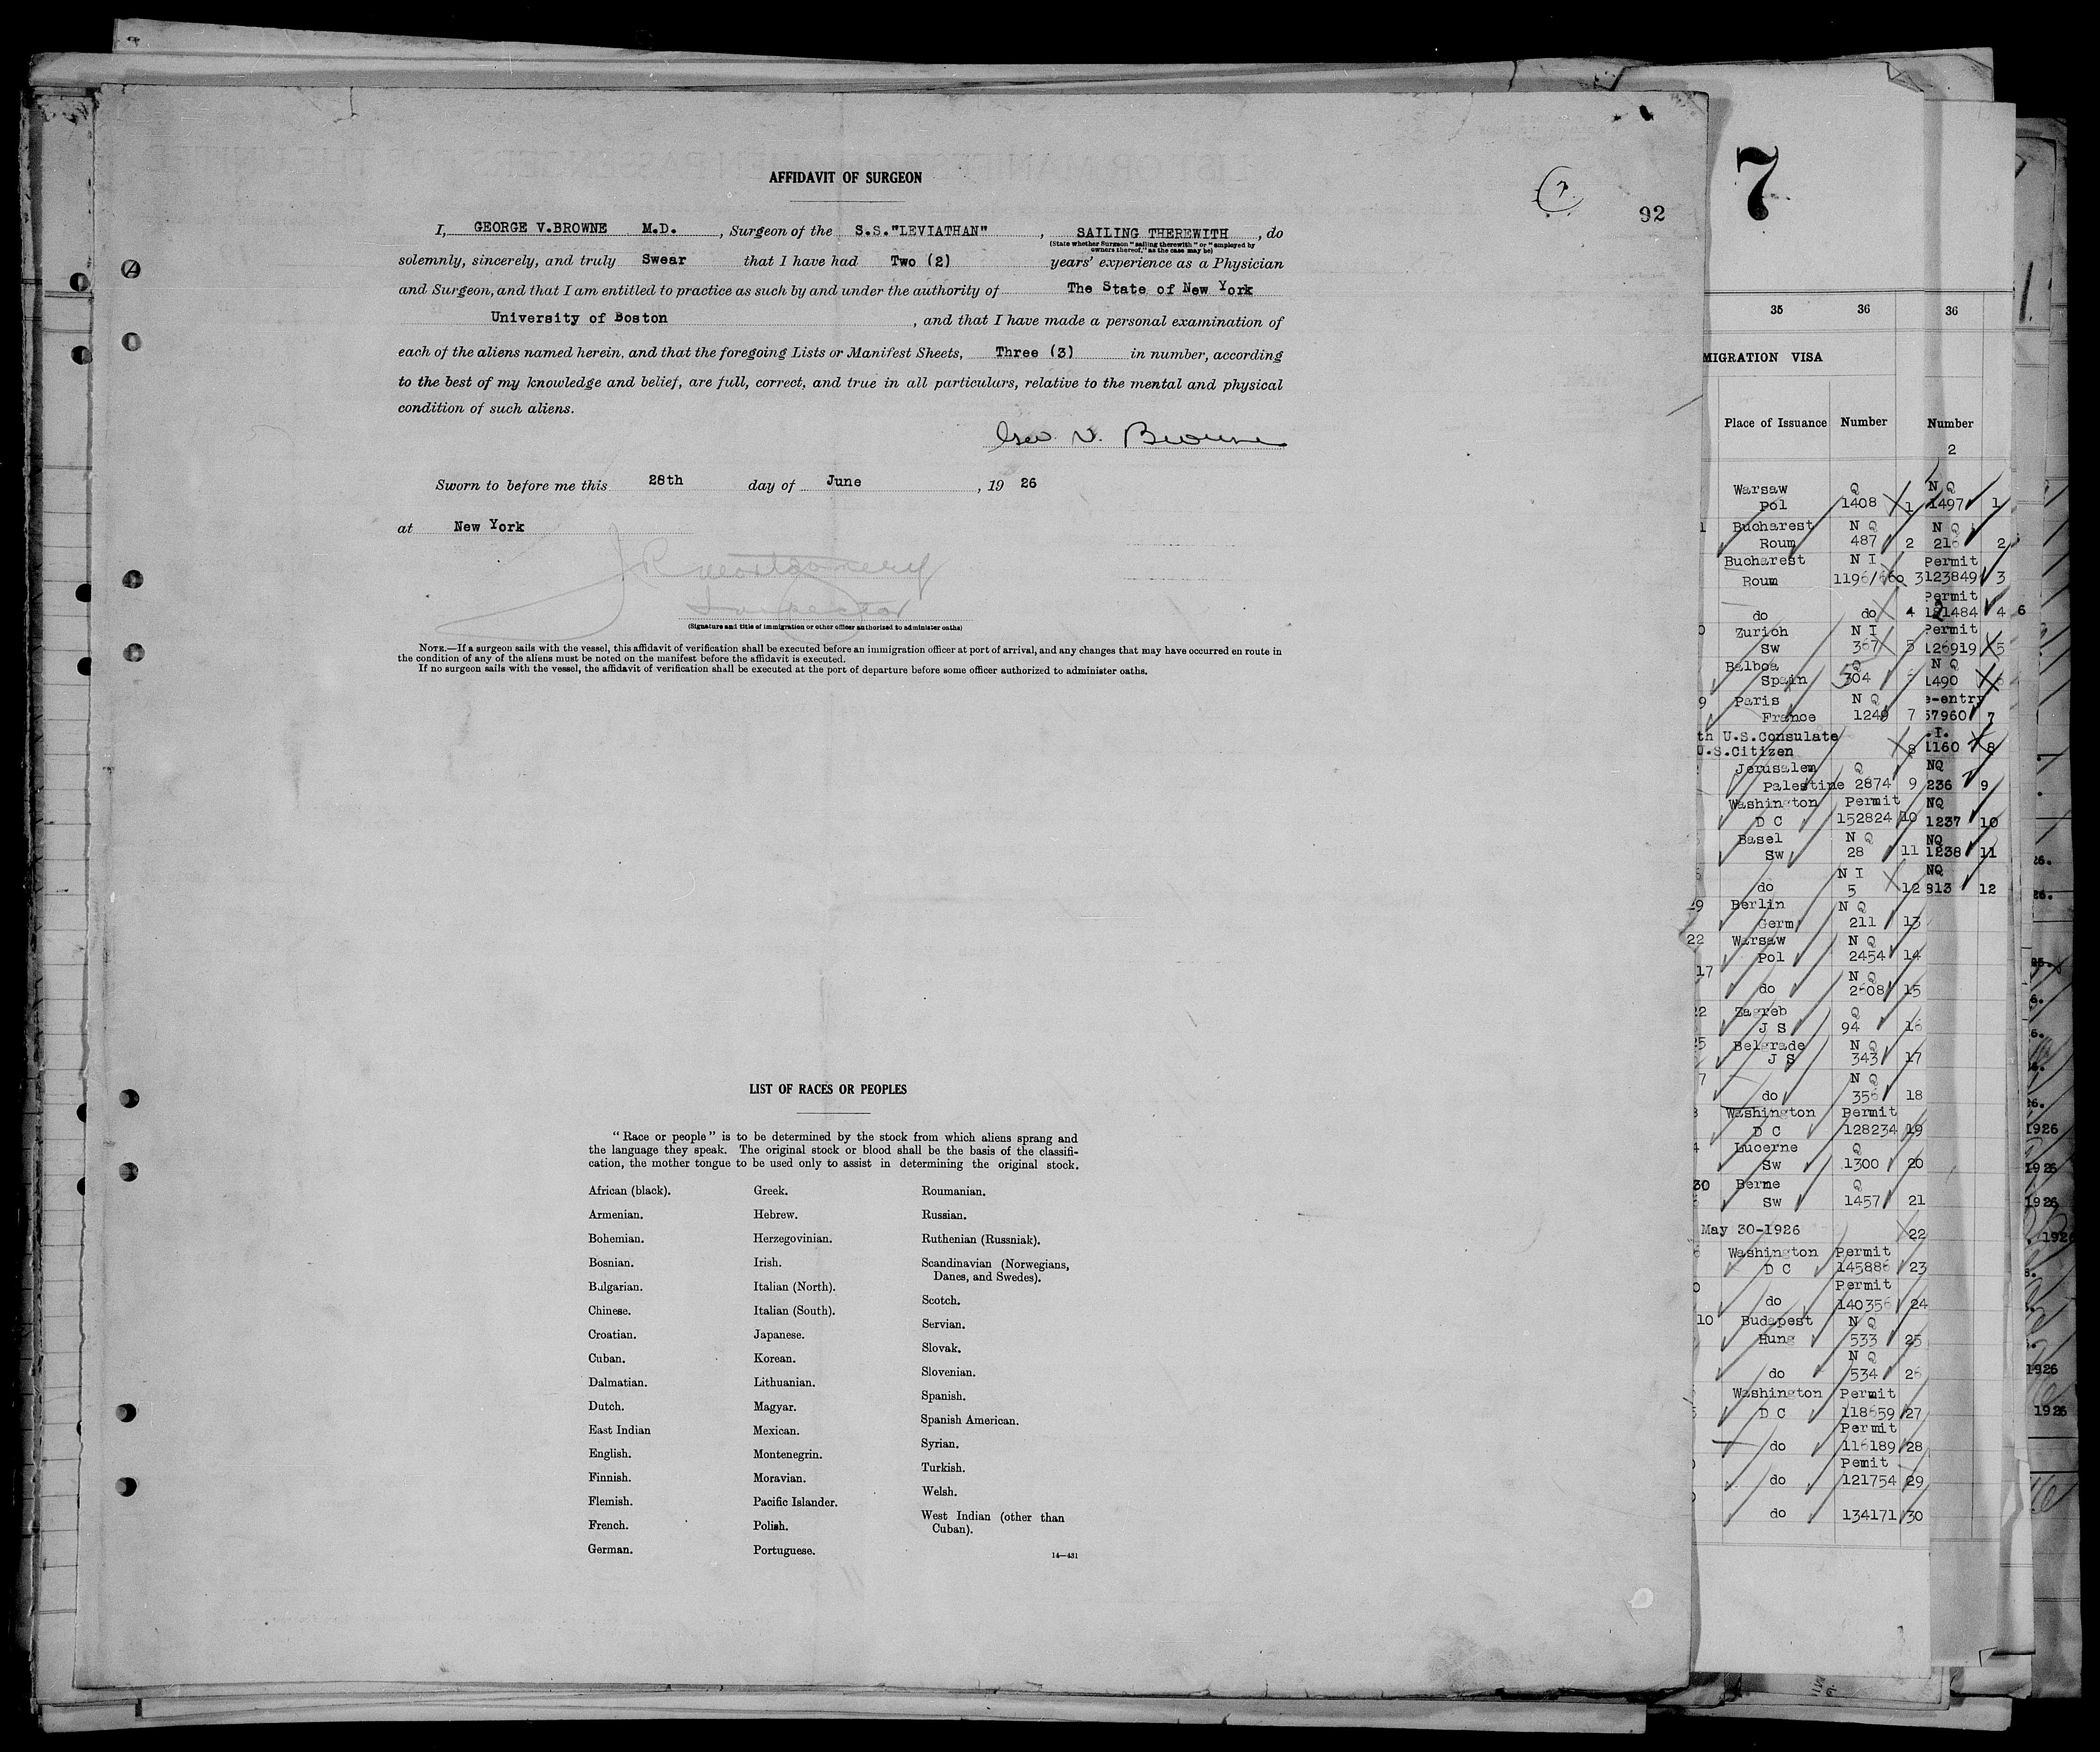 AFFIDAVIT OF SURGEON
92
I, GEORGE V.BROWNE M.D. , Surgeon of the S.S."LEVIATHAN" , SAILING THEREWITH , do
(State whether Surgeon "sailing therewith" or "employed by
owners thereof," as the case may be)
solemnly, sincerely, and truly Swear that I have had Two (2) years' experience as a Physician
and Surgeon, and that I am entitled to practice as such by and under the authority of The State of New York
University of Boston , and that I have made a personal examination of
each of the aliens named herein, and that the foregoing Lists or Manifest Sheets, Three (3) in number, according
to the best of my knowledge and belief, are full, correct, and true in all particulars, relative to the mental and physical
condition of such aliens.
Geo. V. Browne
Sworn to before me this 28th day of June , 19 26
at New York
J R Montgomery
Inspector
(Signature and title of immigration or other officer authorized to administer oaths)
NOTE.—If a surgeon sails with the vessel, this affidavit of verification shall be executed before an immigration officer at port of arrival, and any changes that may have occurred en route in
the condition of any of the aliens must be noted on the manifest before the affidavit is executed.
If no surgeon sails with the vessel, the affidavit of verification shall be executed at the port of departure before some officer authorized to administer oaths.
LIST OF RACES OR PEOPLES
"Race or people" is to be determined by the stock from which aliens sprang and
the language they speak. The original stock or blood shall be the basis of the classifi-
cation, the mother tongue to be used only to assist in determining the original stock.
African (black).
Armenian.
Bohemian.
Bosnian.
Bulgarian.
Chinese.
Croatian.
Cuban.
Dalmatian.
Dutch.
East Indian
English.
Finnish.
Flemish.
French.
German.
Greek.
Hebrew.
Herzegovinian.
Irish.
Italian (North).
Italian (South).
Japanese.
Korean.
Lithuanian.
Magyar.
Mexican.
Montenegrin.
Moravian.
Pacific Islander.
Polish.
Portuguese.
Roumanian.
Russian.
Ruthenian (Russniak).
Scandinavian (Norwegians,
Danes, and Swedes).
Scotch.
Servian.
Slovak.
Slovenian.
Spanish.
Spanish American.
Syrian.
Turkish.
Welsh.
West Indian (other than
Cuban).
14—431
7
35 36 36
MIGRATION VISA
Place of Issuance Number Number
2
Warsaw Q N Q
Pol 1408 1 1497 1
Bucharest N Q N Q
Roum 487 2 216 2
Bucharest N I Permit
Roum 1196/660 3 123849 3
Permit
do do 4 121484 4 6
Zurich N I Permit
Sw 367 5 126919 5
Balboa Q N Q
Spain 304 1490
Paris N Q e-entry
France 1249 7 57960 7
th U.S.Consulate .I.
U.S.Citizen 8 1160 8
Jerusalem Q NQ
Palestine 2874 9 236 9
Washington Permit NQ
D C 152824 10 1237 10
Basel N Q NQ
Sw 28 11 1238 11
N I NQ
do 5 12 813 12
29 Berlin N Q
Germ 211 13
22 Warsaw N Q
Pol 2454 14
17 N Q
do 2608 15
22 Zagreb Q
J S 94 16
25 Belgrade N Q
J S 343 17
7 N Q
do 356 18
Washington Permit
D C 128234 19
Lucerne Q
Sw 1300 20
30 Berne Q
Sw 1457 21
May 30-1926 22
Washington Permit
D C 145886 23
Permit
do 140356 24
10 Budapest N Q
Hung 533 25
N Q
do 534 26
Washington Permit
D C 118659 27
Permit
do 116189 28
Pemit
do 121754 29
do 134171 30
26.
26.
1926
1926
1926
1926
1926
1926